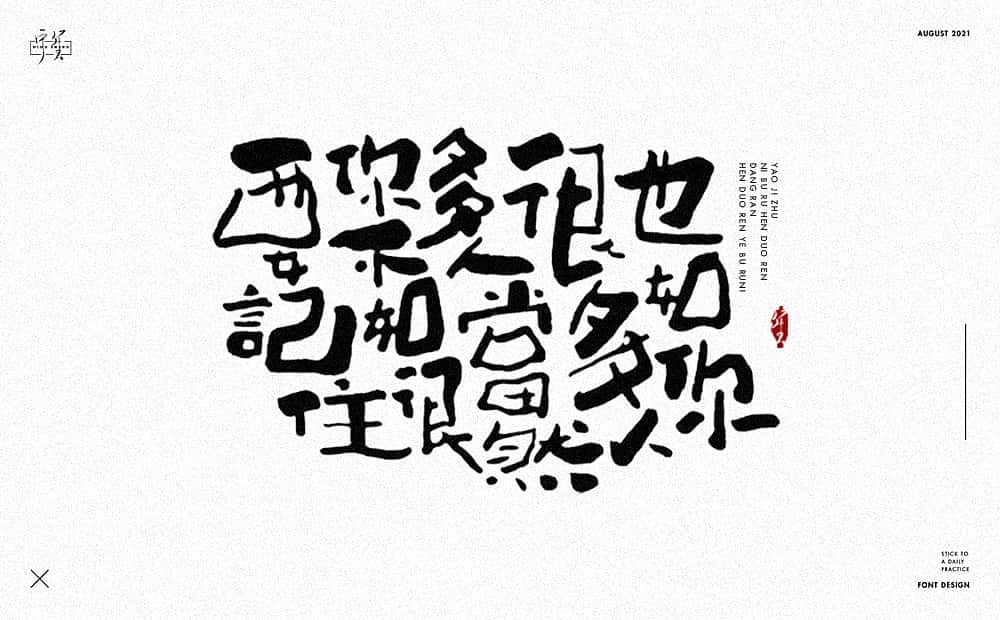 要記住
你不如很
多人當然
很多人
也如你
YAO JI ZHU
NI BU RU HEN DUO REN
DANG RAN
HEN DUO REN YE BU RUNI
AUGUST 2021
STICK TO
A DAILY
PRACTICE
FONT DESIGN